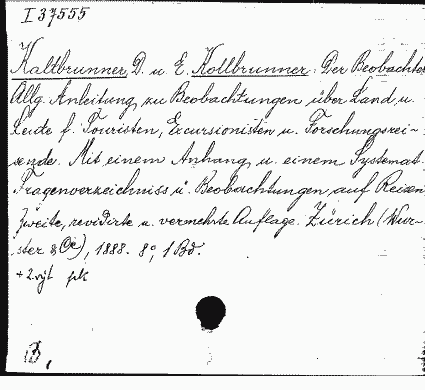 I 37555
Kaltbrunner, D. u. E. Kollbrunner: Der Beobachter
Allg. Anleitung zu Beobachtungen über Land u.
Leute f. Touristen, Excursionisten u. Forschungsrei-
sende. Mit einem Anhang u. einem Systemat.
Fragenverzeichniss u. Beobachtungen auf Reisen
Zweite, revidirte u. vermehrte Auflage. Zürich (Wur-
ster & Cie), 1888. 8°, 1 Bd.
+ 2. výt pk